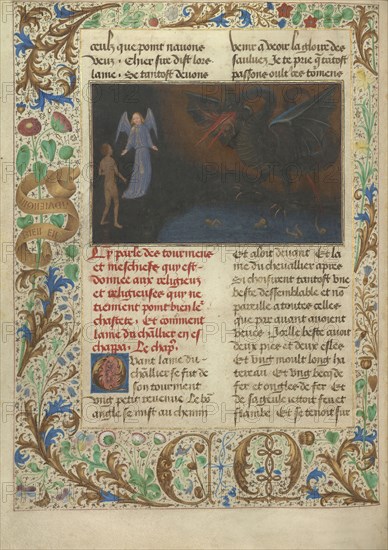 ceulx que point nauons
veuz. Et hier sire dist lors
lame. Se tantost deuons
venir a veoir la gloire des
sauluez Je te prie q̃ tãtost
passons oultre ces tormens
Cy parle des tourmens
et meschiefz quy est
donnee aux religieux
et religieuses quy ne
tiennent point bien le²
chastete. Et comment
lame du chl̃lier en es
chappa. Le chap̃.
Quant lame du
chl̃lier se fut de
son tourment
vng petit reuenue. Le bõ
angle se mist au chemin
Et aloit deuant. Et la
me du cheuallier apres
Sy choisirent tantost vne
beste dessemblable et nõ
pareille a toutes celles
que par auant auoient
veues. Icelle beste auoit
deux piez et deux elles
Et vng moult long ha
tereau. Et vng becq de
fer et ongles de fer. Et
de sa geule iettoit feu et
flambe. Et se tenoit sur